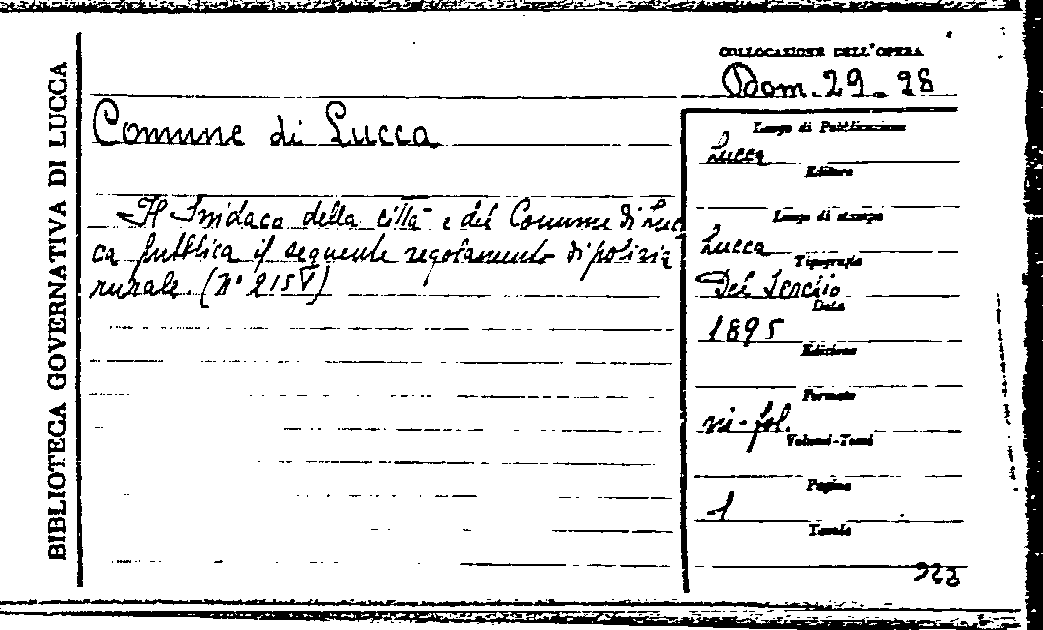 BIBLIOTECA GOVERNATIVA DI LUCCA
COLLOCAZIONE DELL'OPERA
Dom. 29 - 28
Comune di Lucca
Il Sindaco della città e del Comune di Luc
ca pubblica il seguente regolamento di polizia
rurale. (N° 215 V)
Luogo di Pubblicazione
Lucca
Editore
Luogo di stampa
Lucca
Tipografia
Del Serchio
Data
1895
Edizione
Formato
in-fol.
Volumi-Tomi
Pagine
1
Tavole